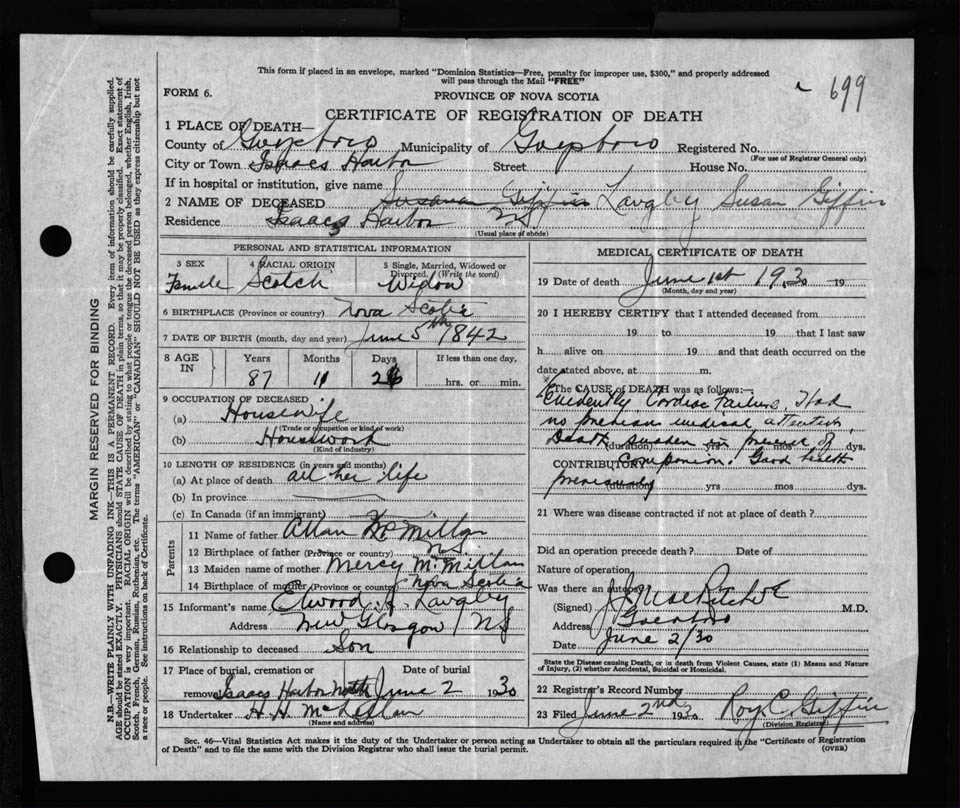 This form if placed in an envelope, marked "Dominion Statistics—Free, penalty for improper use, $300," and properly addressed
will pass through the Mail "FREE"
699
FORM 6.
PROVINCE OF NOVA SCOTIA
CERTIFICATE OF REGISTRATION OF DEATH
1 PLACE OF DEATH—
County of Guysboro Municipality of Guysboro Registered No.
(For use of Registrar General only)
City or Town Isaacs Harbor Street House No.
If in hospital or institution, give name
2 NAME OF DECEASED Susanan Giffin Langley Susan Giffin
Residence Isaacs Harbor N.S.
(Usual place of abode)
PERSONAL AND STATISTICAL INFORMATION
3 SEX 4 RACIAL ORIGIN 5 Single, Married, Widowed or
Divorced. (Write the word)
Female Scotch Widow
6 BIRTHPLACE (Province or country) Nova Scotia
7 DATE OF BIRTH (month, day and year) June 5th 1842
8 AGE IN Years Months Days If less than one day,
87 11 26 hrs. or min.
9 OCCUPATION OF DECEASED
(a) Housewife
(Trade or occupation or kind of work)
(b) Housework
(Kind of industry)
10 LENGTH OF RESIDENCE (in years and months)
(a) At place of death all her life
(b) In province
(c) In Canada (if an immigrant)
Parents
11 Name of father Allan McMillan
12 Birthplace of father (Province or country) N.S.
13 Maiden name of mother Mercy McMillan
14 Birthplace of mother (Province or country) Nova Scotia
15 Informant's name Elwood J Langley
Address New Glasgow N.S
16 Relationship to deceased Son
17 Place of burial, cremation or Date of burial
removal Isaacs Harbor North June 2 1930
18 Undertaker H. H. McLellan
(Name and address)
MEDICAL CERTIFICATE OF DEATH
19 Date of death June 1st 1930 19
(Month, day and year)
20 I HEREBY CERTIFY that I attended deceased from
19 to 19 that I last saw
h alive on 19 and that death occurred on the
date stated above, at m.
The CAUSE of DEATH was as follows:—
Evidently Cordiac Failure, Had
no previous medical attention
Death sudden in presence of
(duration) yrs mos. dys.
CONTRIBUTORY Companion. Good health
previously
(duration) yrs mos. dys.
21 Where was disease contracted if not at place of death?
Did an operation precede death? Date of
Nature of operation
Was there an autopsy
(Signed) M.D.
Address Guysboro
Date June 2/30
State the Disease causing Death, or in death from Violent Causes, state (1) Means and Nature
of Injury, (2) whether Accidental, Suicidal or Homicidal.
22 Registrar's Record Number
23 Filed June 2nd 1930 Roy C Giffin
(Division Registrar)
Sec. 46—Vital Statistics Act makes it the duty of the Undertaker or person acting as Undertaker to obtain all the particulars required in the "Certificate of Registration
of Death" and to file the same with the Division Registrar who shall issue the burial permit.
(OVER)
MARGIN RESERVED FOR BINDING
N.B.—WRITE PLAINLY WITH UNFADING INK—THIS IS A PERMANENT RECORD. Every item of information should be carefully supplied.
AGE should be stated EXACTLY. PHYSICIANS should STATE CAUSE OF DEATH in plain terms, so that it may be properly classified. Exact statement of
OCCUPATION is very important. RACIAL ORIGIN will be described by stating to what people or tongue the deceased person belonged, whether English, Irish,
Scotch, French, German, Russian, Ruthenian, etc. The terms "AMERICAN" or "CANADIAN" SHOULD NOT BE USED as they express citizenship but not
a race or people. See instructions on back of Certificate.